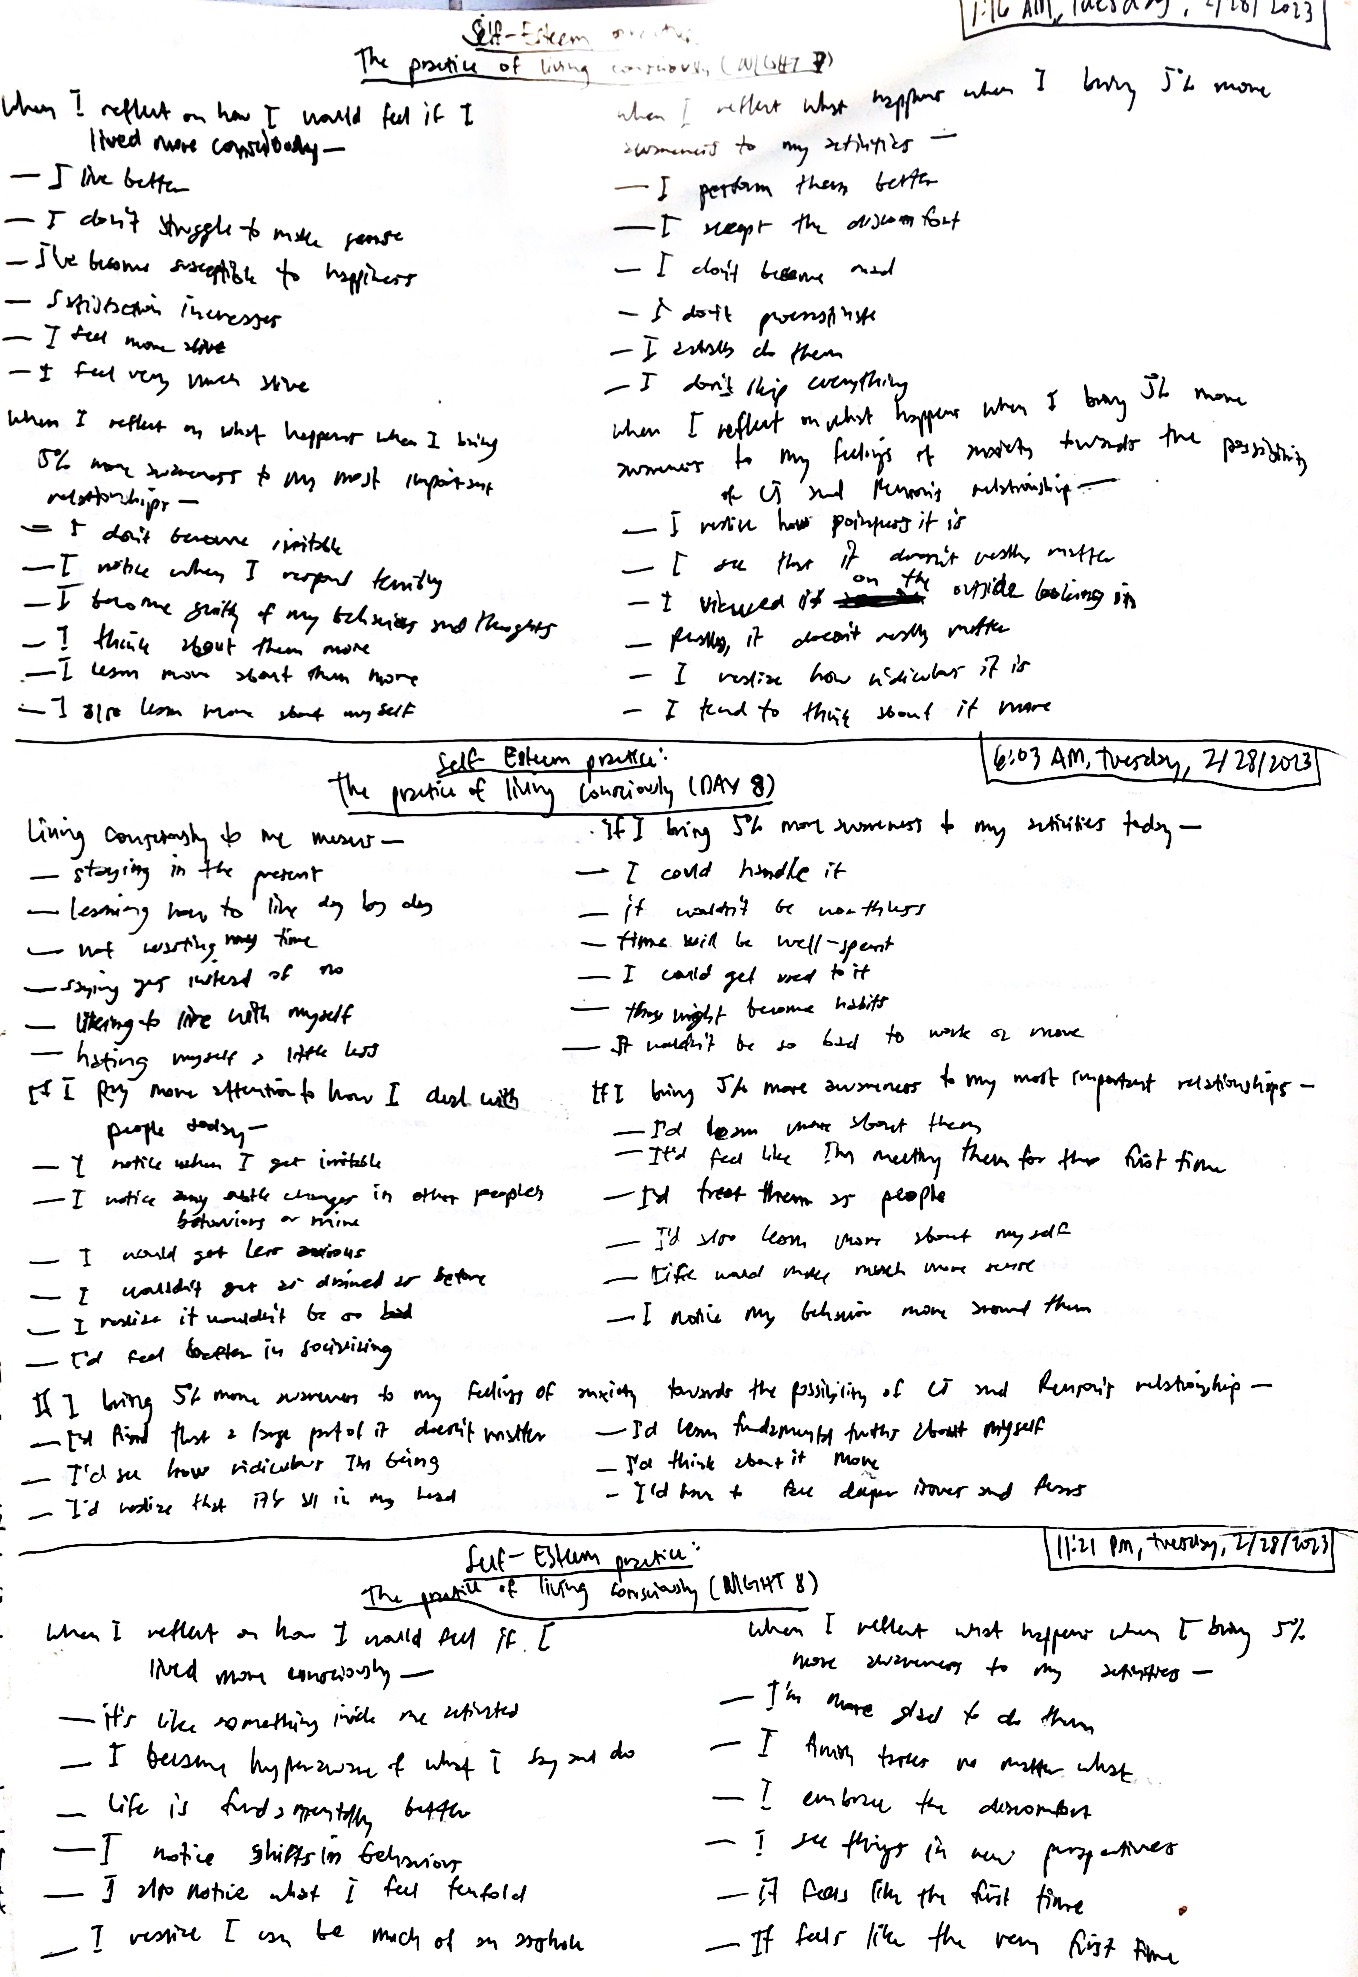 1:16 AM, Tuesday, 2/28/2023
Self-Esteem practice:
The practice of living consciously (NIGHT 7)
When I reflect on how I would feel if I
lived more consciously—
— I live better
— I don't struggle to make sense
— I've become susceptible to happiness
— Satisfaction increases
— I feel more alive
— I feel very much alive
When I reflect on what happens when I bring
5% more awareness to my most important
relationships—
— I don't become irritable
— I notice when I respond terribly
— I become guilty of my behaviors and thoughts
— I think about them more
— I learn more about them more
— I also learn more about myself
When I reflect what happens when I bring 5% more
awareness to my activities—
— I perform them better
— I accept the discomfort
— I don't become mad
— I don't procrastinate
— I actually do them
— I don't skip everything
When I reflect on what happens when I bring 5% more
awareness to my feelings of anxiety towards the possibility
of CJ and relationship—
— I realize how pointless it is
— I see that it doesn't really matter
— I viewed it on the outside looking in
— Really, it doesn't really matter
— I realize how ridiculous it is
— I tend to think about it more
Self-Esteem practice:
The practice of living consciously (DAY 8)
6:03 AM, Tuesday, 2/28/2023
Living consciously to me means—
— staying in the present
— learning how to live day by day
— not wasting my time
— saying yes instead of no
— liking to live with myself
— hating myself a little less
If I pay more attention to how I deal with
people today—
— I notice when I get irritable
— I notice any subtle changes in other people's
behaviors or mine
— I would get less anxious
— I wouldn't get as drained as before
— I realize it wouldn't be so bad
— I'd feel better in socializing
If I bring 5% more awareness to my activities today—
— I could handle it
— it wouldn't be worthless
— time will be well-spent
— I could get used to it
— these might become habits
— It wouldn't be so bad to work or move
If I bring 5% more awareness to my most important relationships—
— I'd learn more about them
— It'd feel like I'm meeting them for the first time
— I'd treat them as people
— I'd also learn more about myself
— Life would make much more sense
— I notice my behavior more around them
If I bring 5% more awareness to my feelings of anxiety towards the possibility of CJ and relationship—
— I'd find that a large part of it doesn't matter
— I'd see how ridiculous I'm being
— I'd realize that it's all in my head
— I'd learn fundamental truths about myself
— I'd think about it more
— I'd have to face deeper issues and fears
Self-Esteem practice:
The practice of living consciously (NIGHT 8)
11:21 PM, Tuesday, 2/28/2023
When I reflect on how I would feel if I
lived more consciously—
— it's like something inside me activated
— I became hyperaware of what I say and do
— Life is fundamentally better
— I notice shifts in behaviors
— I also notice what I feel tenfold
— I realize I can be much of an asshole
When I reflect what happens when I bring 5%
more awareness to my activities—
— I'm more glad to do them
— I finish tasks no matter what
— I embrace the discomfort
— I see things in new perspectives
— It feels like the first time
— It feels like the very first time